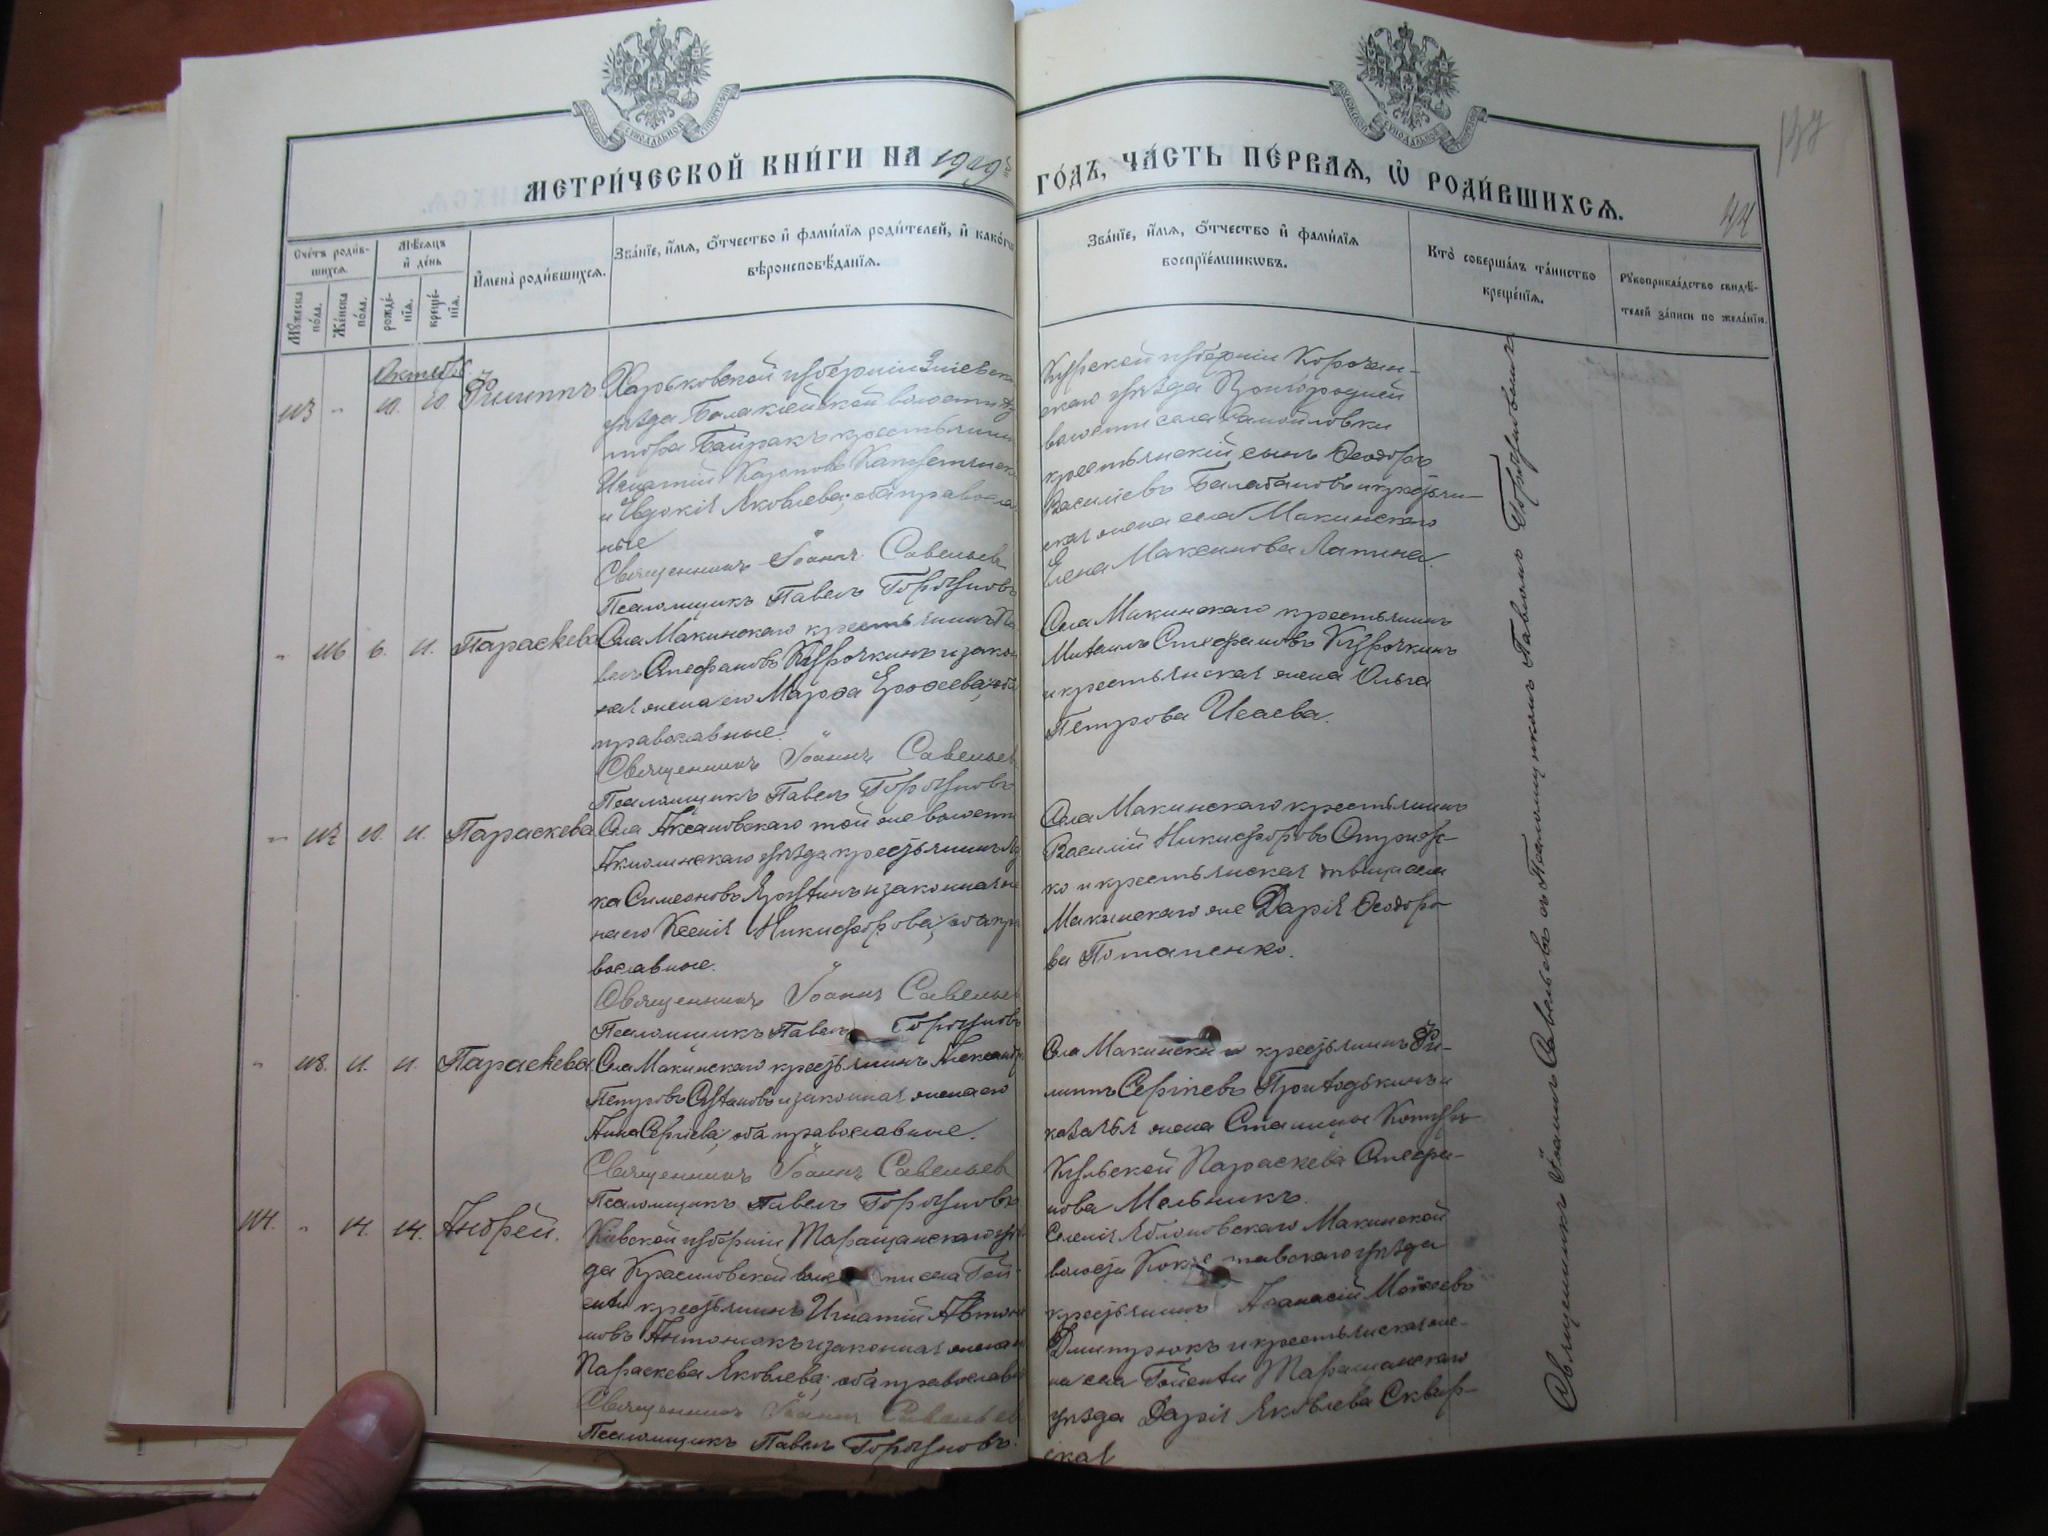 МЕТРИ́ЧЕСКОЙ КНИ́ГИ НА 1909й
ГО́ДЪ, ЧА́СТЬ ПЕ́РВАѦ, Ѡ҆ РОДИ́ВШИХСѦ.
187
44
Сче́тъ роди́в-
шихсѧ.
Мѹ́жеска по́ла.
Же́нска по́ла.
Мѣ́сѧцъ
и҆ де́нь
рожде́-
нїѧ.
креще́-
нїѧ.
И҆мена̀ роди́вшихсѧ.
Зва́нїе, и҆́мѧ, ѻ҆́тчество и҆ фами́лїѧ роди́телей, и҆ како́гѡ
вѣроисповѣ́данїѧ.
Зва́нїе, и҆́мѧ, ѻ҆́тчество и҆ фами́лїѧ
воспрїе́мникѡвъ.
Кто̀ соверша́лъ та́инство
креще́нїѧ.
Рꙋкоприкла́дство свидѣ́-
телей за́писи по жела́нїю.
Октябрь
113 " 10. 10. Филиппъ.
Харьковской губернiи Змiевска
уѣзда Балаклейской волости
тора Байракъ крестьянинъ
Игнатiй
и Евдокiя Яковлева; оба православ
ные
Священникъ Iоаннъ Савельевъ
Псаломщикъ Павелъ Горбуновъ
Курской губернiи Корочан-
скаго уѣзда Пригородней
волости села Самойловки
крестьянскiй сынъ Ѳеодоръ
Васильевъ Балабановъ и крестьян-
ская жена села Макинскаго
Елена Максимова Лапина.
" 116 6. 11. Параскева
Села Макинскаго крестьянинъ Па
велъ Стефановъ Курочкинъ и закон
ная жена его Марѳа Ероѳеева; оба
православные.
Священникъ Iоаннъ Савельев
Псаломщикъ Павелъ Горбуновъ
Села Макинскаго крестьянинъ
Михаилъ Стефановъ Курочкинъ
и крестьянская жена Ольга
Петрова Исаева.
" 117 10. 11. Параскева
Села Аксановскаго той же волости
Акмолинскаго уѣзда крестьянинъ Лу
ка Симеоновъ и законная же
на его Ксенiя Никифорова; оба пра
вославные.
Священникъ Iоаннъ Савельев
Псаломщикъ Павелъ Горбуновъ
Села Макинскаго крестьянинъ
Василiй Никифоровъ
ко и крестьянская дѣвица села
Макинскаго же Дарiя Ѳеодоро
ва Потапенко.
" 118. 11. 11. Параскева
Села Макинскаго крестьянинъ Александръ
Петровъ и законная жена его
Анна Сергiева; оба православные.
Священникъ Iоаннъ Савельев
Псаломщикъ Павелъ Горбуновъ
Села Макинскаго крестьянинъ Фи-
липпъ Сергiевъ Приходькинъ и
казачья жена Станицы
Параскева Стефа-
нова Мельникъ.
114. " 14. 14. Андрей.
Кiевской губернiи Таращанскаго уѣз
да Красиловской волости села
крестьянинъ Игнатiй Антоно
новъ Антонюкъ и законная жена его
Параскева Яковлева; оба православн
Священникъ Iоаннъ Савельев
Псаломщикъ Павелъ Горбуновъ.
Селенiя Яблоновскаго Макинской
волости Кокчетавскаго уѣзда
крестьянинъ Аѳанасiй Моисеевъ
Дмитрюкъ и крестьянская же-
на села Таращанскаго
уѣзда Дарiя Яковлева Сквир-
ская
Священникъ Iоаннъ Савельевъ съ Псаломщикомъ Павломъ Горбуновымъ